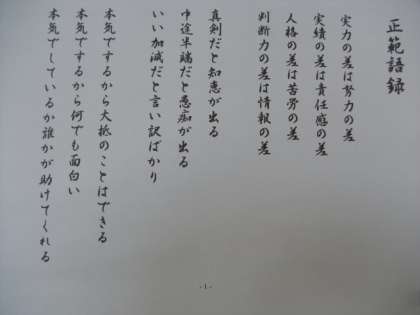 正範語録
実力の差は努力の差
実績の差は責任感の差
人格の差は苦労の差
判断力の差は情報の差
真剣だと知恵が出る
中途半端だと愚痴が出る
いい加減だと言い訳ばかり
本気でするから大抵のことはできる
本気でするから何でも面白い
本気でしているから誰かが助けてくれる
- 1 -